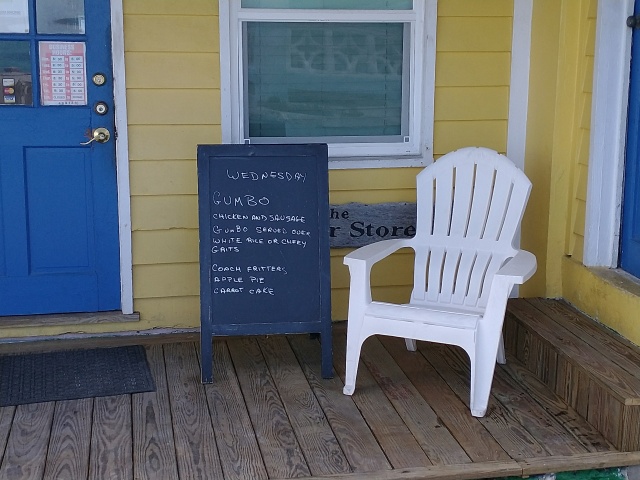 BUSINESS HOURS
WEDNESDAY
GUMBO
CHICKEN AND SAUSAGE
GUMBO SERVED OVER
WHITE RICE OR CHEESY
GRITS
FRITTERS
APPLE PIE
CARROT CAKE
The
r Store